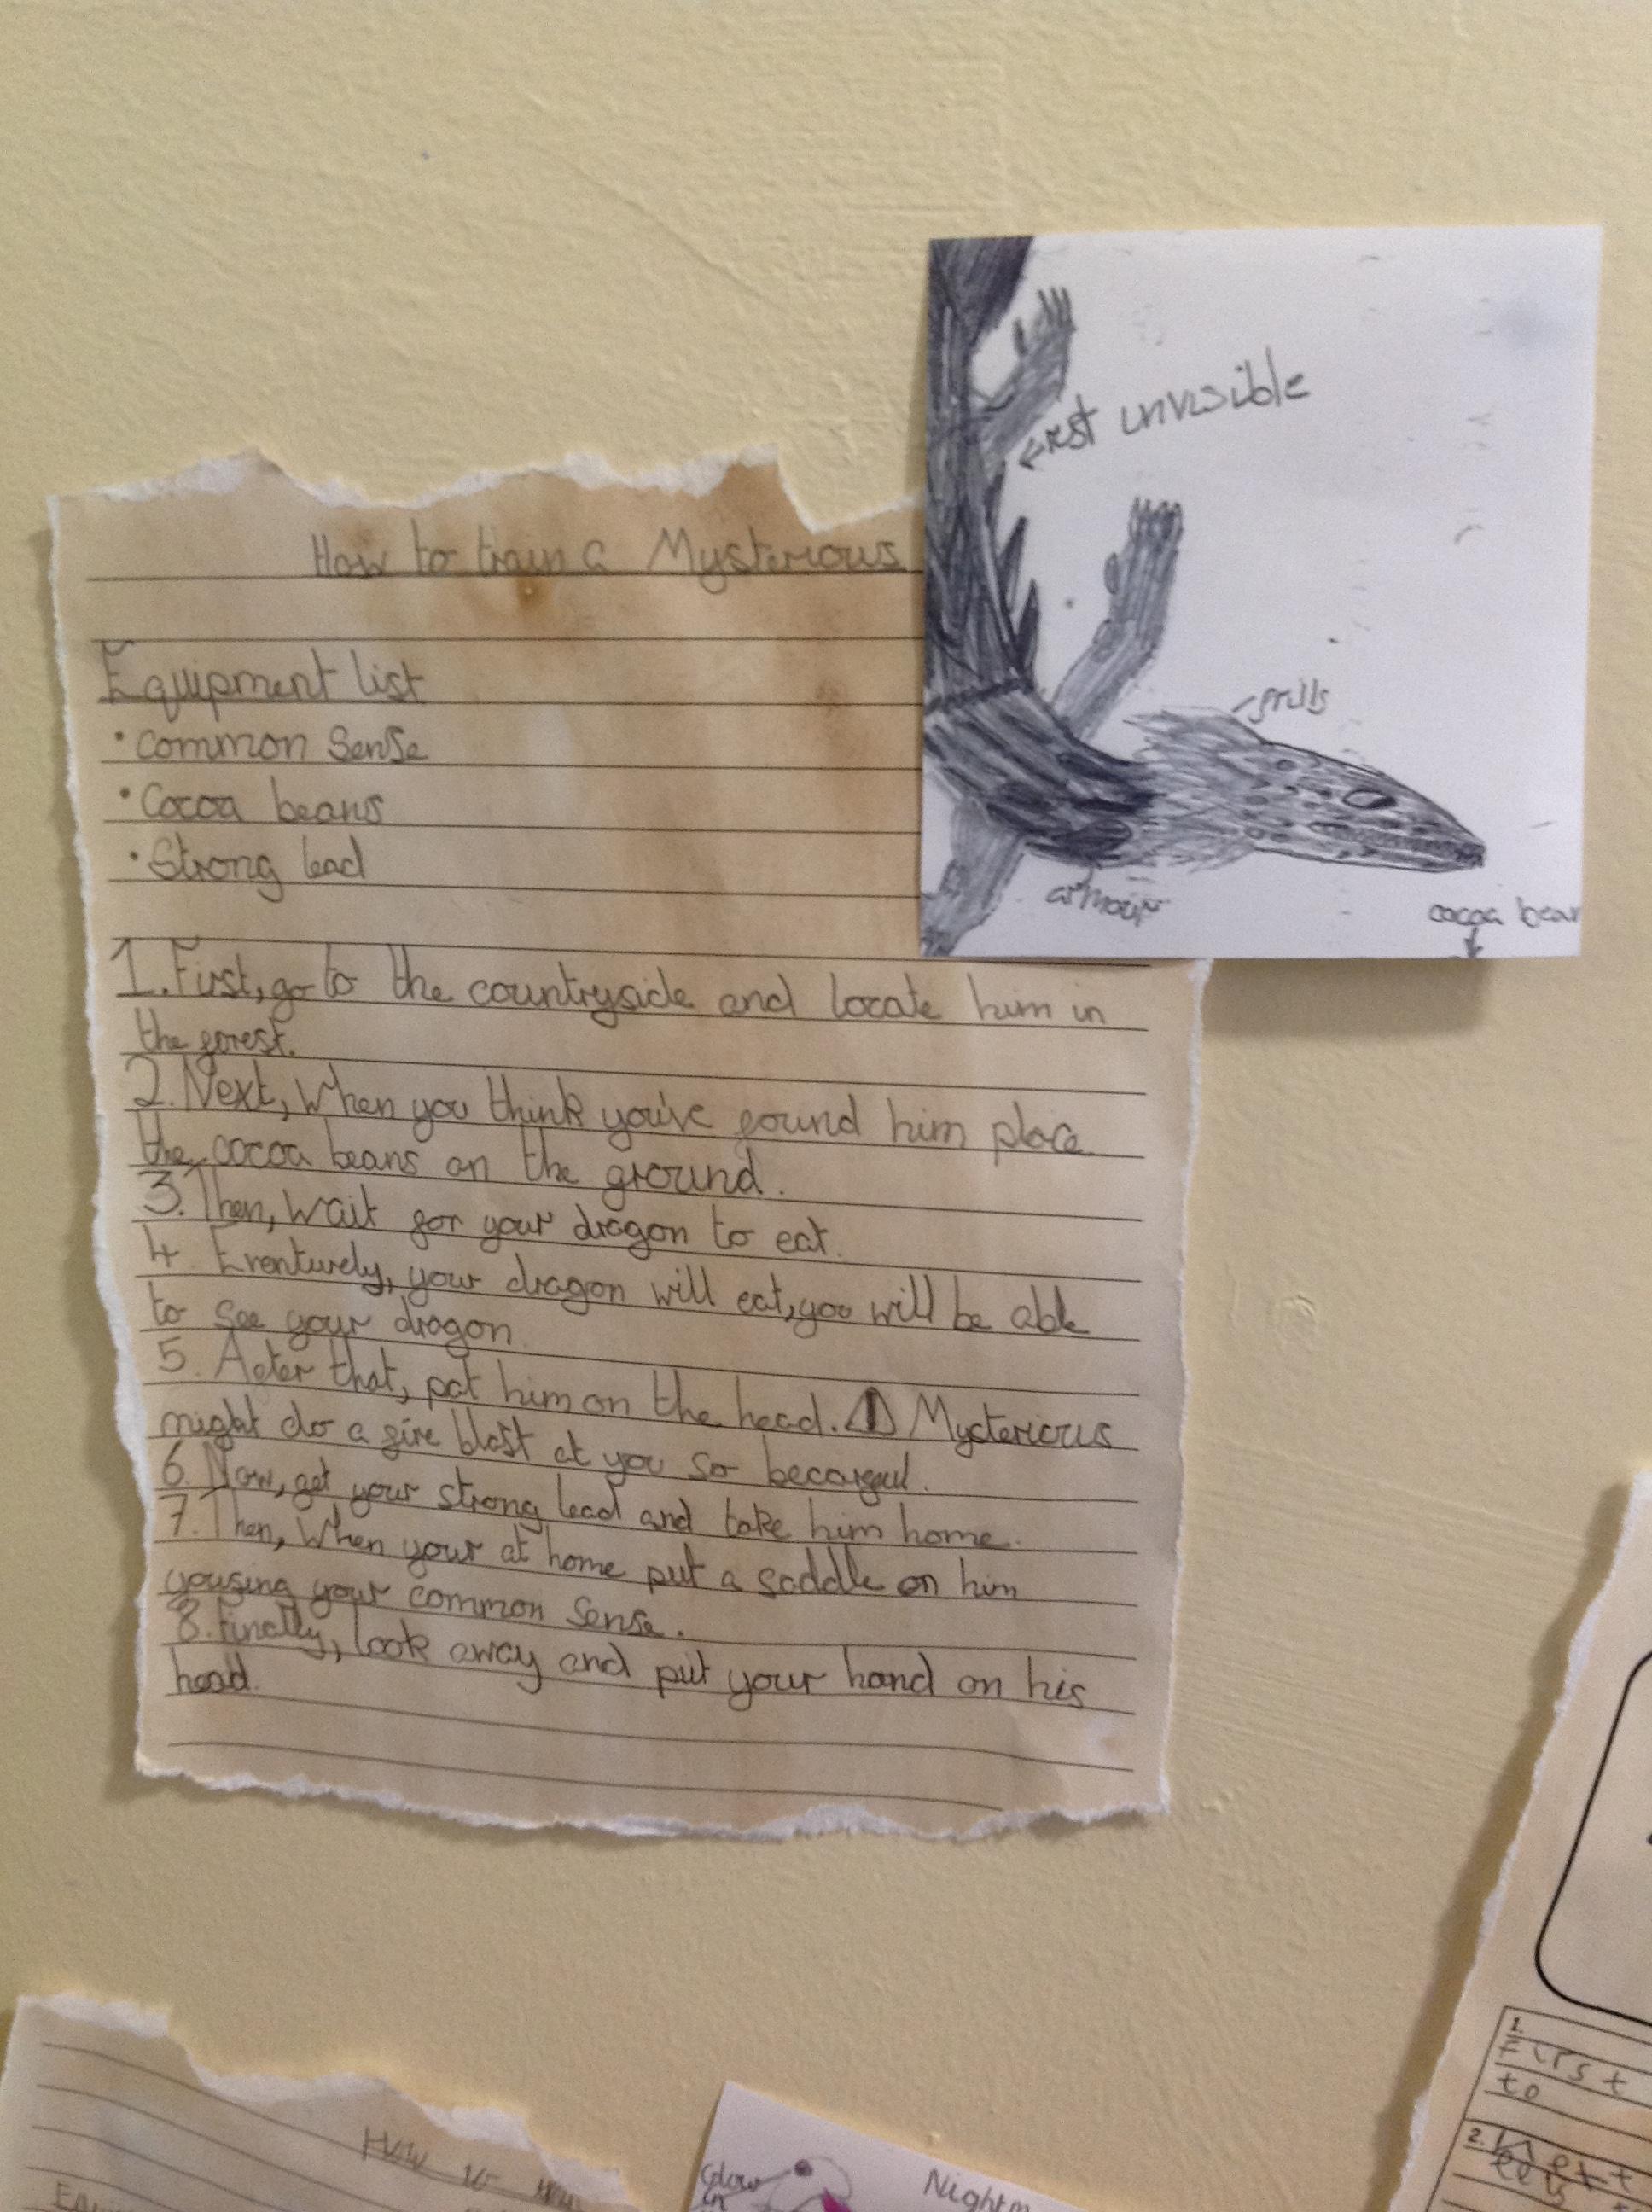 How to train a Mysterious
Equipment list
• Common Sense
• Cocoa beans
• Strong lead
1. First, go to the countryside and locate him in
the forest.
2. Next, When you think you've found him place
the cocoa beans on the ground.
3. Then, wait for your dragon to eat.
4. Eventurely, your dragon will eat, you will be able
to see your dragon.
5. After that, pat him on the head. Mysterious
might do a fire blast at you so becareful.
6. Now, get your strong lead and take him home.
7. Then, When your at home put a saddle on him
yousing your common sense.
8. Finally, look away and put your hand on his
head.
rest invisible
frills
armour
cocoa bean
How to
Glow
in
Nightm
1.
First
to
2.